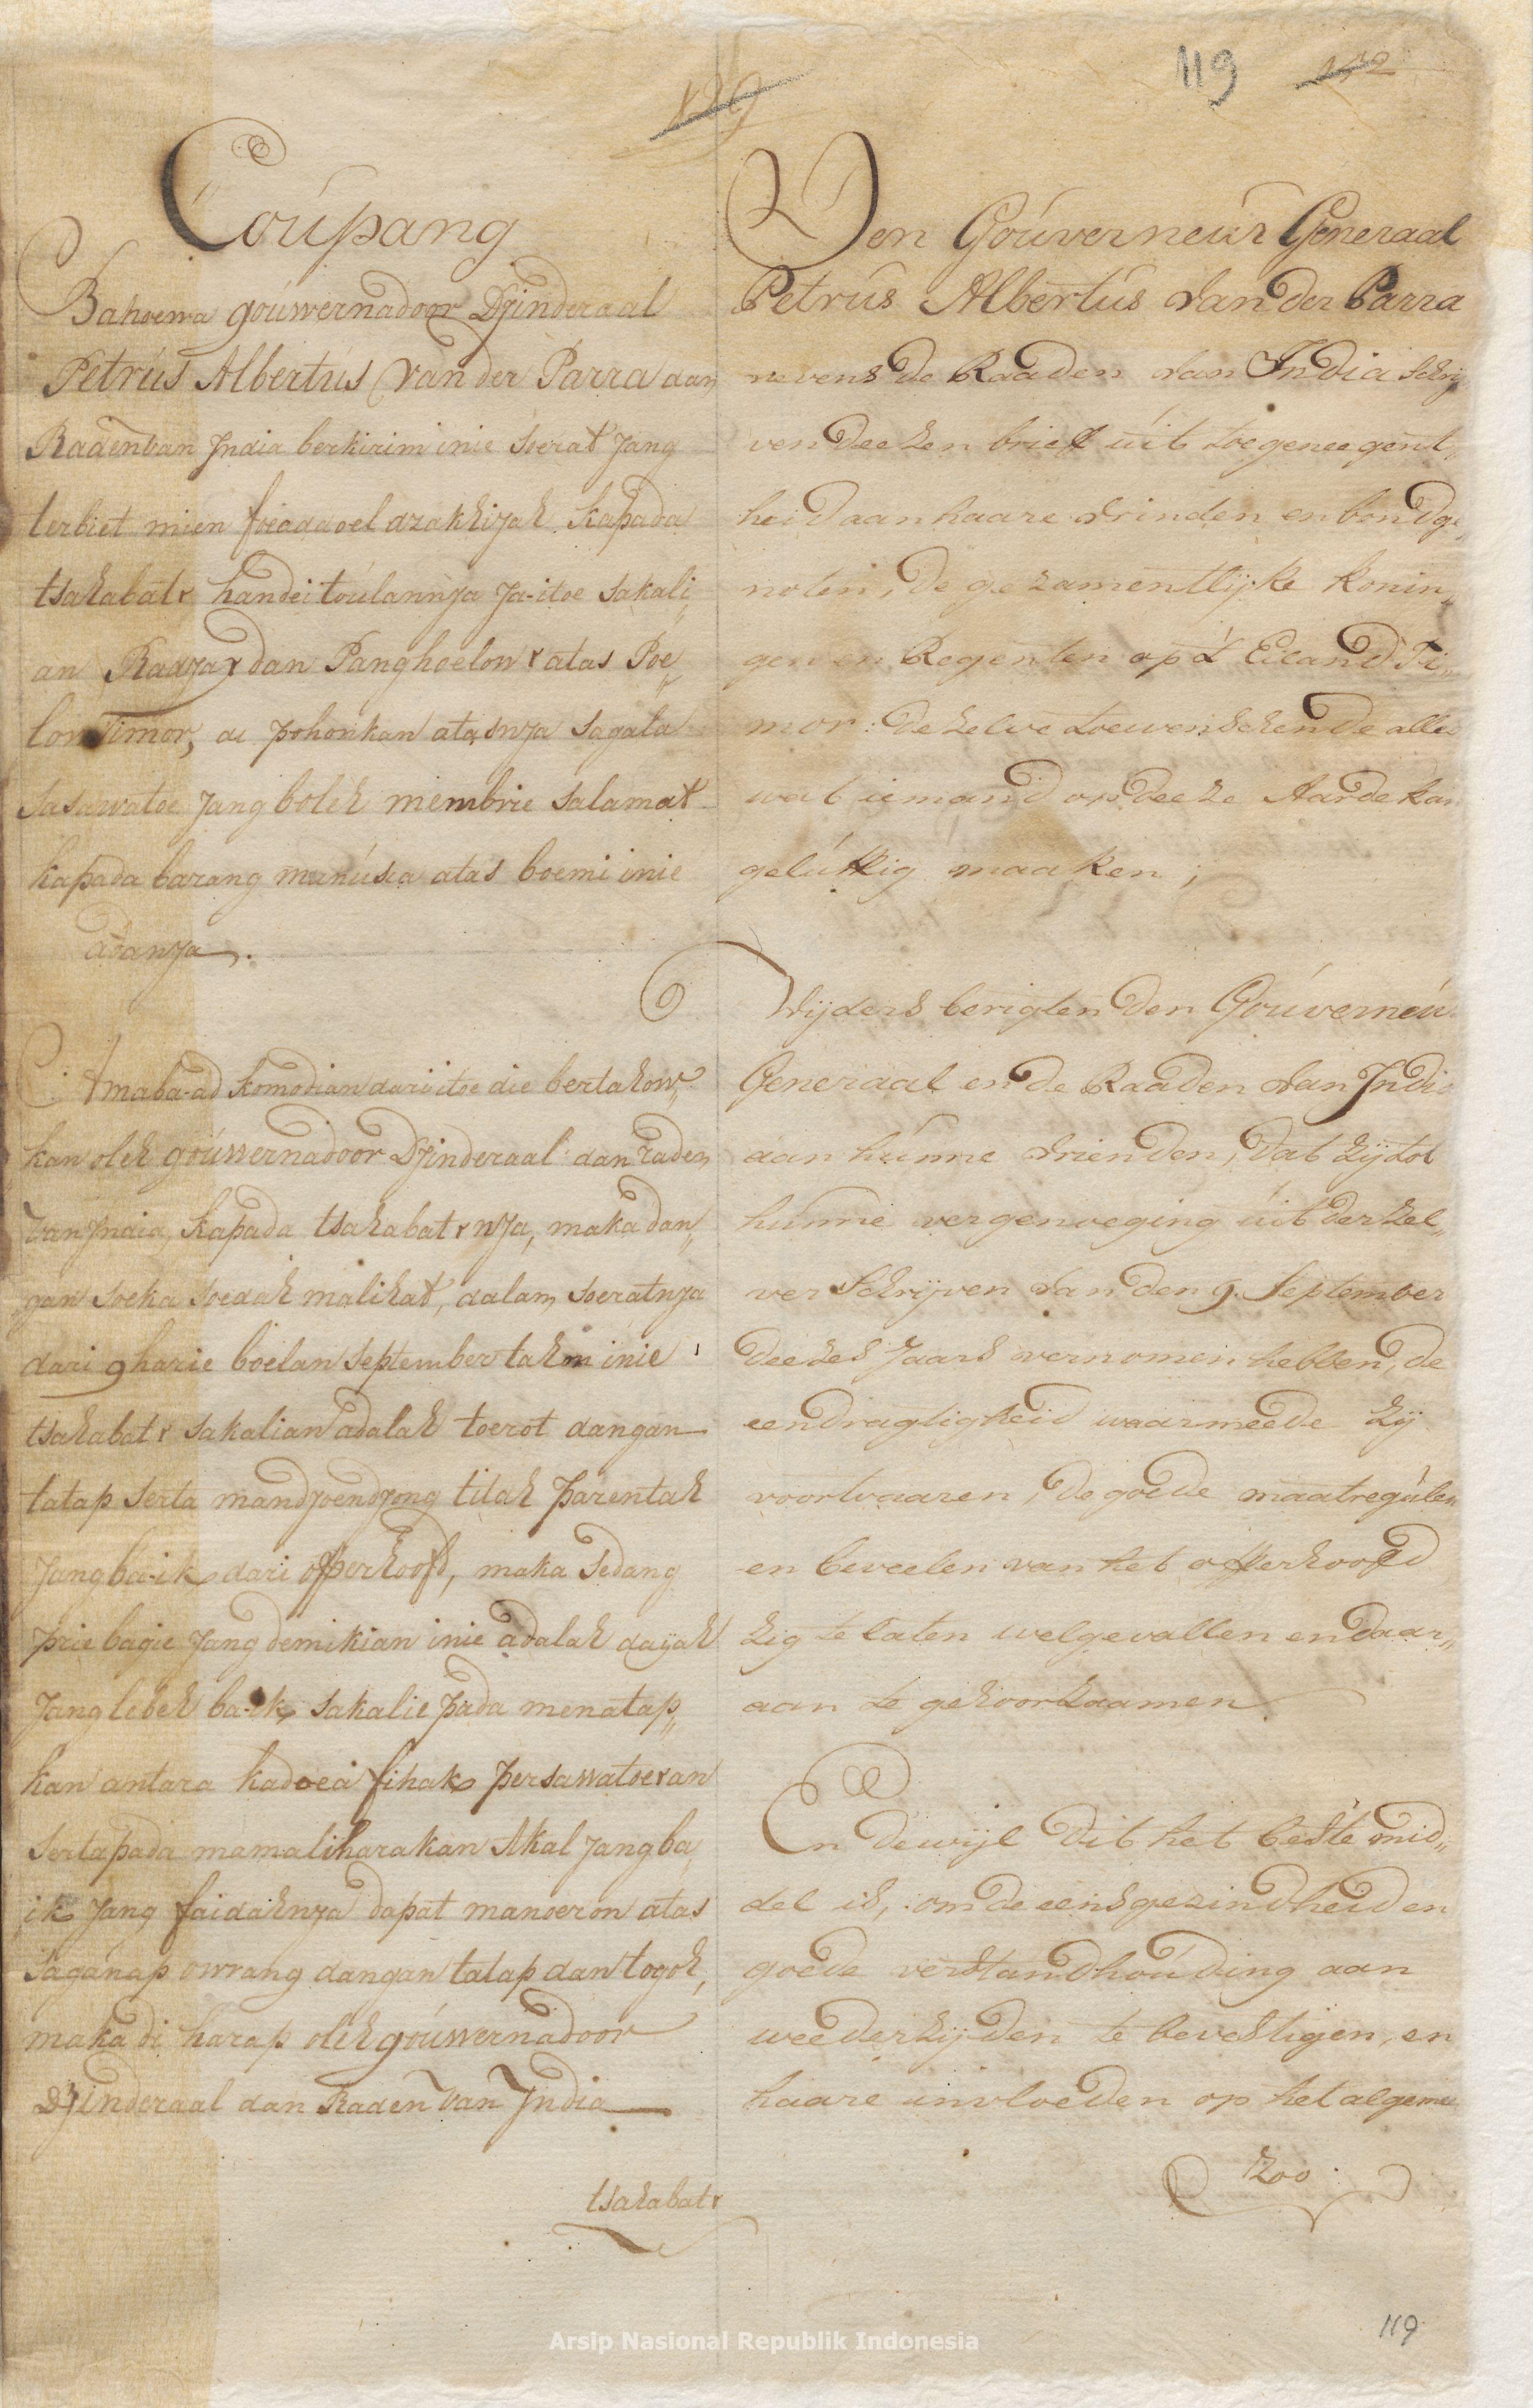 119
Coúpang
Bahoewa goúwernadoor Djinderaal
Petrús Albertús Van der Parra dan
Radenvan India berkirim inie soerat Jang
terbiet mien foeadaoel azakkijah kapada
tsahabatr handeitoúlannja Ja-itoe sakali„
an Radjar dan Panghoelow r atas Poe„
low Timor, di pohonkan atasnja sagala
sasawatoe Jang boleh membrie salamat
kapada barang manúsia atas boemi inie
adanja.
Amaba-ad komodian dari itoe die bertahow„
kan oleh goúwernadoor Djinderaal dan raden
van India, kapada tsahabat r nja, maka dan„
gan soeka soedah malihat, dalam soeratnja
dari 9 harie boelan September tahon inie
tsahabat r sakalian adalah toerot dangan
tatap serta mandjoendjong titah parentah
Jang ba-ik dari opperhoofd, maka sedang
prie bagie Jang demikian inie adalah daijah
Jang lebeh ba-ik sakalie pada menatap„
kan antara kadoea fihak persawatoean
serta pada mamaliharakan Akal Jang ba
ik Jang faidahnja dapat manoeron atas
saganap owrang dangan tatap dan togoh,
maka di harap oleh goúwernadoor
Djinderaal dan Raden van India
tsahabatr
Den Goúverneúr Generaal
Petrús Albertús van der Parra
nevens de Raaden van India schrij„
ven deezen brief úit toegeneegent„
heid aan haare vrinden en bondge„
noten, de gezamentlijke konin„
gen en Regenten op 't Eiland Ti„
mor: dezelve toewenschende alles
wat iemand op deeze Aarde kan
gelúkkig maaken;
Wijders berigten den Goúverneúr
Generaal en de Raaden van India
aan húnne vrienden, dat zij tot
húnne vergenoeging úit derzel„
ver schrijven van den 9. September
deezes Jaars vernomen hebben, de
eendragtigheid waarmeede zij
voortvaaren, de goede maatregúlen
en beveelen van het opperhoofd
zig te laten welgevallen en daar„
aan te gehoorzaamen
En dewijl dit het beste mid„
del is, om de eensgezindheid en
goede verstandhoúding aan
weederzijden te bevestigen, en
haare invloeden op het algemee
Zoo
119
Arsip Nasional Republik Indonesia